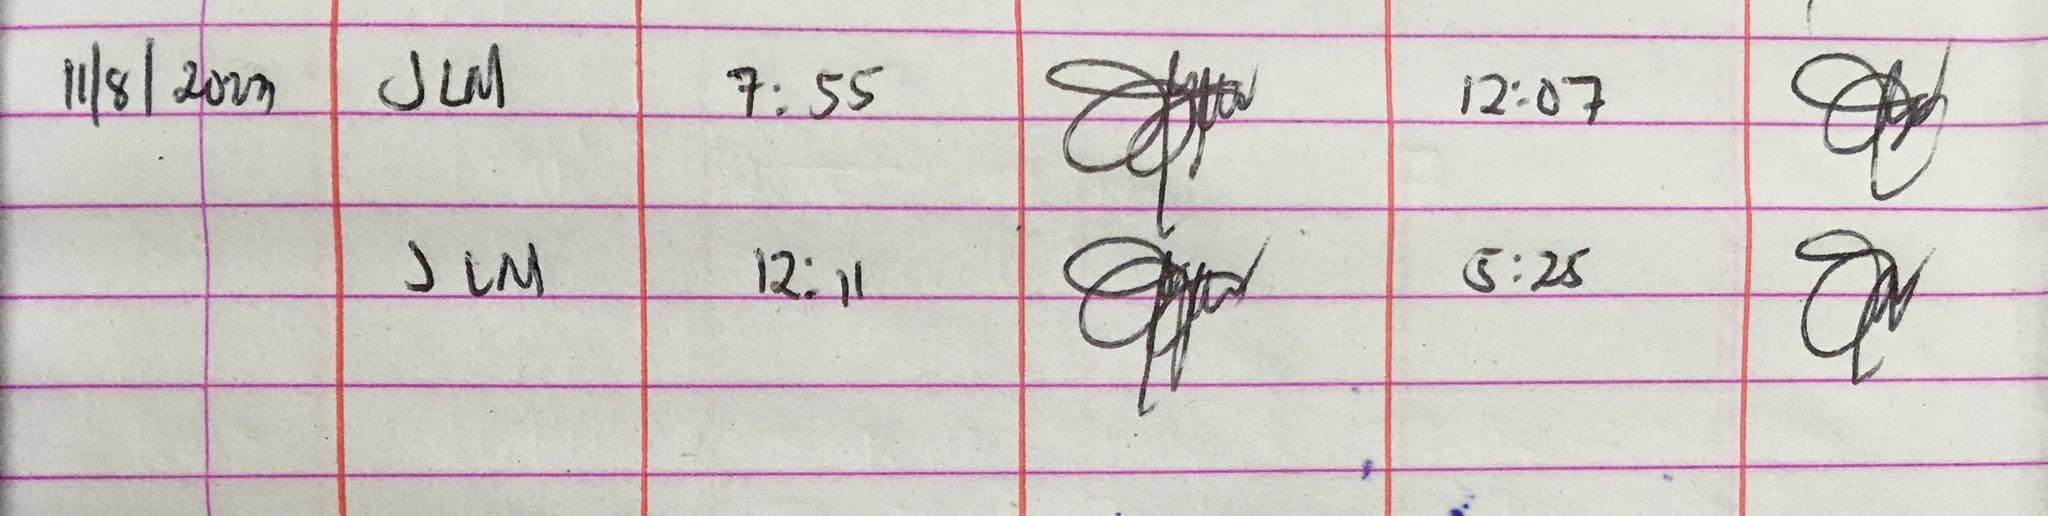 11/8/2023 JLM 7:55 12:07
JLM 12:11 5:25